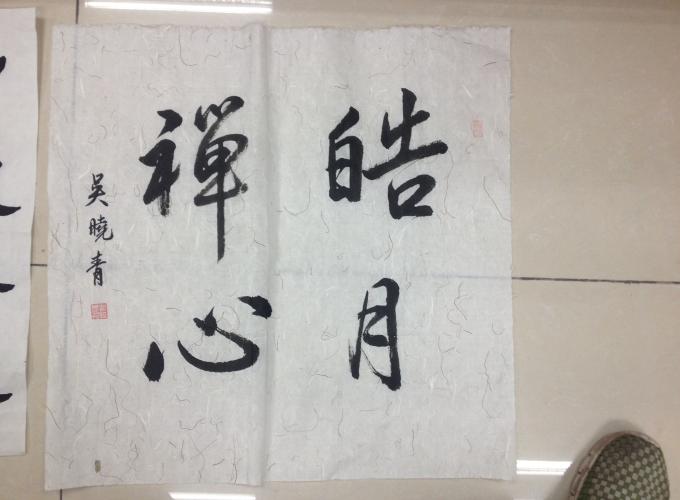 皓月
禪心
吳曉青